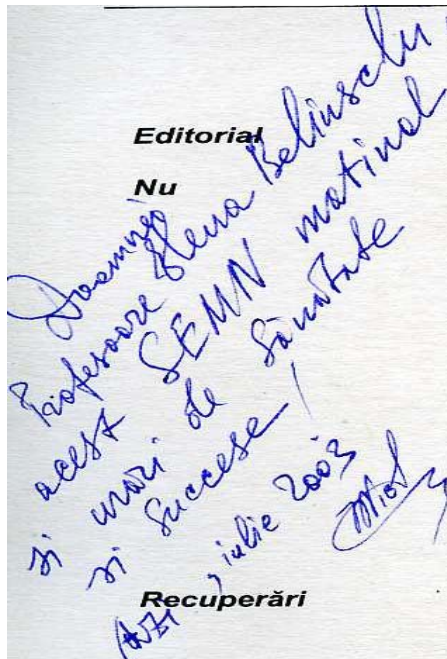 Editorial
Nu
Doamnei
Profesoare Elena Belinschi,
acest SEMN matinal
și urări de sănătate
și succese!
iulie 2003
Recuperări